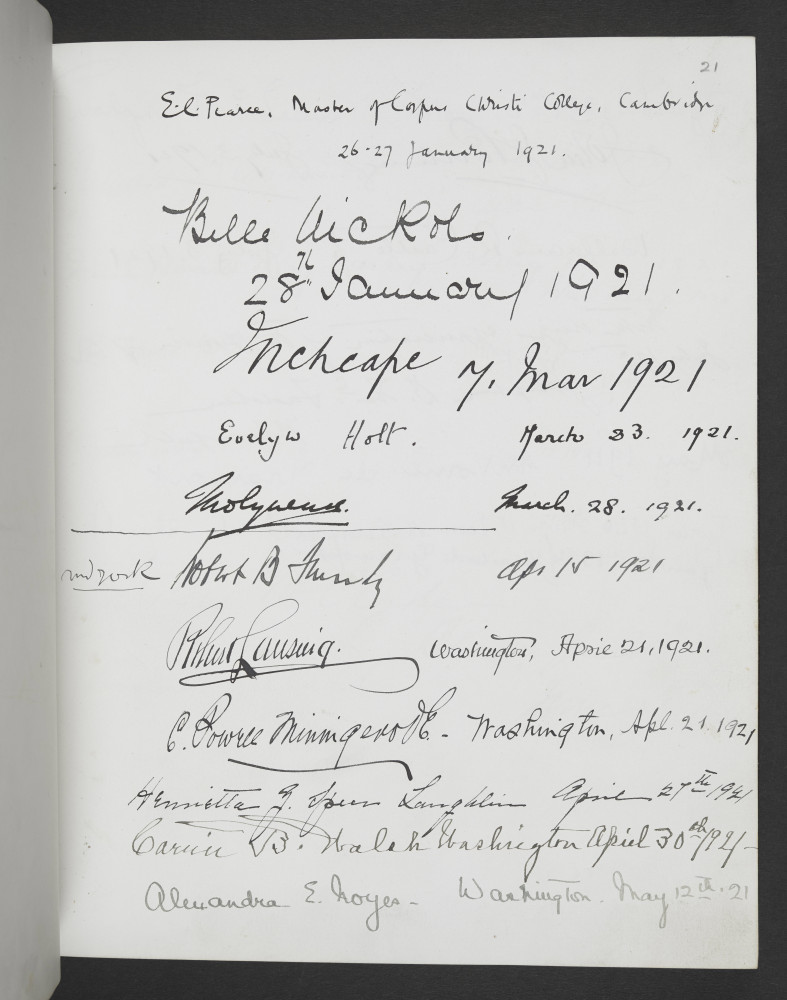 21
E.C. Pearce, Master of Corpus Christi College, Cambridge
26-27 January 1921.
Belle Nickols.
28th January 1921.
Inchcape 7. Mar 1921
Evelyn Holt. March 23. 1921.
Molyneux. March. 28. 1921.
Robert B Apr 15 1921
Robert Lansing. Washington, April 21, 1921.
C. Powell Minnigerode - Washington, Apl. 21 1921
Henrietta Laughlin April 27th 1921
Carrie B. Walsh Washington April 30th 1921-
Alexandra E. Noyes - Washington. May 12th. 21